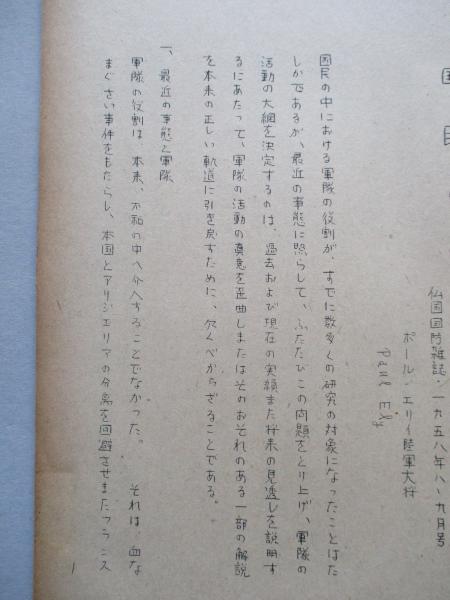 国民
仏国国防雑誌・一九五八年八・九月号
ポール・エリイ陸軍大将
Paul Ely
国民の中における軍隊の役割が、すでに数多くの研究の対象になったことはた
しかであるが、最近の事態に照らして、ふたたびこの問題をとり上げ、軍隊の
活動の大綱を決定するのは、過去および現在の実績また将来の見透しを説明す
るにあたって、軍隊の活動の真意を歪曲しまたはそのおそれのある一部の解説
を本来の正しい軌道に引き戻すために、欠くべからざることである。
一、最近の事態と軍隊
軍隊の役割は、本来、不和の中へ介入することでなかった。 それは、血な
まぐさい事件をもたらし、本国とアリジェリアの分離を回避させまたフランス
1